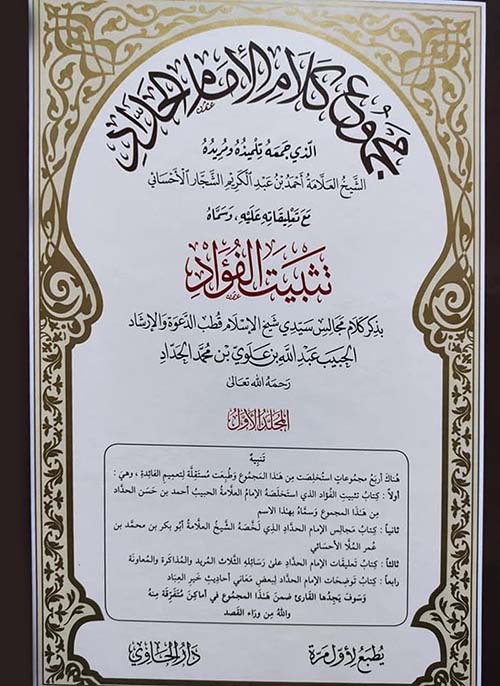 مجموع كلام الإمام الحداد
الذي جمعه تلميذه ومريده
الشيخ العلامة أحمد بن عبد الكريم الشجار الأحسائي
مع تعليقاته عليه، وسماه
تثبيت الفؤاد
بذكر كلام مجالس سيدي شيخ الإسلام قطب الدعوة والإرشاد
الحبيب عبد الله بن علوي بن محمد الحداد
رحمه الله تعالى
المجلد الأول
تنبيه
هناك أربع مجموعات استخلصت من هذا المجموع وطبعت مستقلة لتعميم الفائدة، وهي:
أولاً: كتاب تثبيت الفؤاد الذي استخلصه الإمام العلامة الحبيب أحمد بن حسن الحداد
من هذا المجموع وسماه بهذا الاسم
ثانياً: كتاب مجالس الإمام الحداد الذي لخصه الشيخ العلامة أبو بكر بن محمد بن
عمر الملا الأحسائي
ثالثاً: كتاب تعليقات الإمام الحداد على رسائله الثلاث المريد والمذاكرة والمعاونة
رابعاً: كتاب توضحات الإمام الحداد لبعض معاني أحاديث خير العباد
وسوف يجدها القارئ ضمن هذا المجموع في أماكن متفرقة منه
والله من وراء القصد
يطبع لأول مرة
دار الحاوي